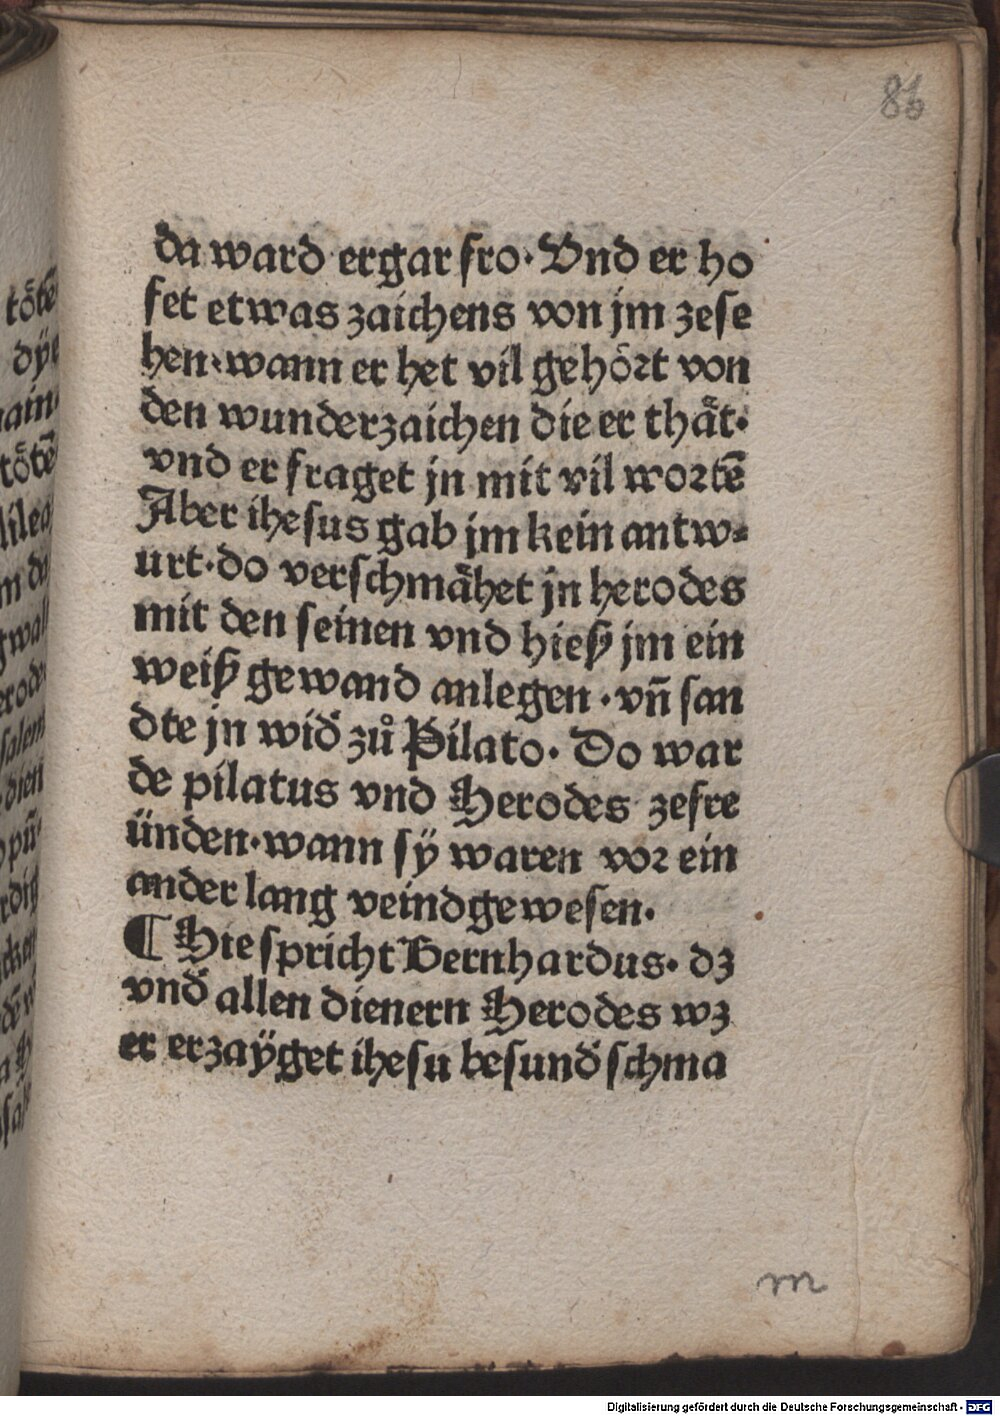 86
da ward ergar fro· Vnd er ho
fet etwas zaichens von jm zese
hen·wann er het vil gehört von
den wunderzaichen die er thät·
vnd er fraget jn mit vil wortē
Aber ihesus gab jm kein antw⸗
urt·do verschmähet jn herodes
mit den seinen vnd hieß jm ein
weiß gewand anlegen·vn̄ san
dte jn wid̄ zů Pilato· Do war
de pilatus vnd Herodes zefre
ünden·wann sÿ waren vor ein
ander lang veindgewesen·
¶ Hie spricht Bernhardus· dz
vnd̄ allen dienern Herodes wz
er erzaÿget ihesu besund̄ schma
m
Digitalisierung gefördert durch die Deutsche Forschungsgemeinschaft - DFG